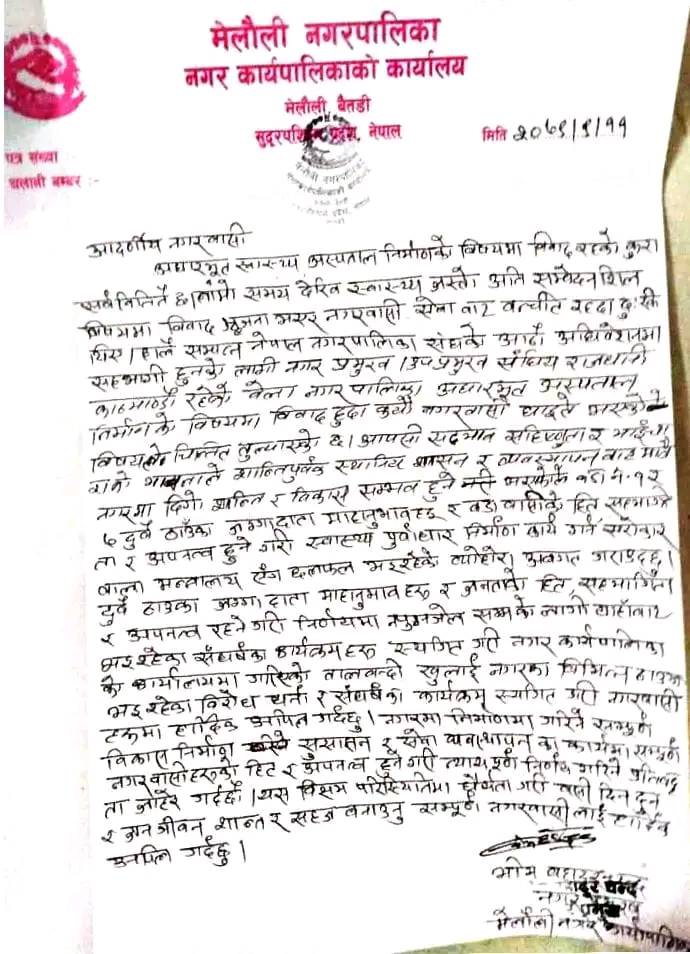 मेलौली नगरपालिका
नगर कार्यपालिकाको कार्यालय
मेलौली, बैतडी
सुदूरपश्चिम प्रदेश, नेपाल
मिति २०७९/९/११
पत्र संख्या
चलानी नम्बर :-
आदर्णीय नगरवासी
अधारभूत स्वास्थ्य अस्पताल निर्माणको विषयमा विवाद रहेको कुरा
सर्वविदितै छ। लामो समय देखि स्वास्थ्य जस्तो अति सम्वेदनशिल
विषयमा विवाद भएर नगरवासी सेवा बाट वन्चीत रहदा दुःखि
थिए। हालै सम्पन्न नेपाल नगरपालिका संघको आठौ अधिवेशनमा
सहभागी हुनको लागी नगर प्रमुख । उपप्रमुख संघिय राजधानी
काठमाण्डौ रहेको वेला नगरपालिका अधारभूत अस्पताल
निर्माणको विषयमा विवाद हुदा कयौ नगरवासी घाइते भएको
विषयले चिन्तित तुल्याएको छ। आपसी सदभाव सहिष्णुता र भाईचा
राको भावनाले शान्तिपुर्वक स्थानिय शासन र व्यवस्थापन बाट मात्रै
नगरमा दिगो शान्ति र विकास सम्भव हुने वडा नं. १ र
५ दुवै ठाउँका जग्गादाता माहानुभावहरु र वडा वासीको हित सहभागि
ता र अपनत्व हुने गरी स्वास्थ्य पुर्वाधार निर्माण कार्य गर्न सरोकार
वाला मन्त्रालय संग छलफल भइरहेको व्योहोरा अवगत गराउदछु।
दुवै ठाउका जग्गा दाता माहानुभावहरु र जनताको हित, सहभागिता
र अपनत्व रहने गरी निर्णयमा नपुगुन्जेल सम्मको लागी त्याहाँबाट
भइरहेका संघर्षका कार्यक्रमहरु स्थगित गरी नगर कार्यपालिका
को कार्यालयमा गरिएको तालाबन्दी खुलाई नगरका विभिन्न ठाउमा
भइरहेका विरोध धर्ना र संघर्षका कार्यक्रम स्थगित गरी नगरवासी
एकमा हार्दिक अपिल गर्दछु। नगरमा निर्माणमा गरिने सम्पूर्ण
विकास निर्माण सुसासन र सेवा व्यवस्थापन का कार्यमा सम्पूर्ण
नगरवासीहरुको हित र अपनत्व हुने गरी न्याय पुर्ण निर्णय गरिने प्रतिवद्ध
ता जाहेर गर्दछौ। यस विसम परिस्थितिमा धैर्यता गरी
र जनजीवन शान्त र सहज बनाउनु सम्पूर्ण नगरवासी लाई हार्दिक
अपिल गर्दछु।
भीम बहादुर चन्द
नगर प्रमुख
मेलौली नगर कार्यपालिका